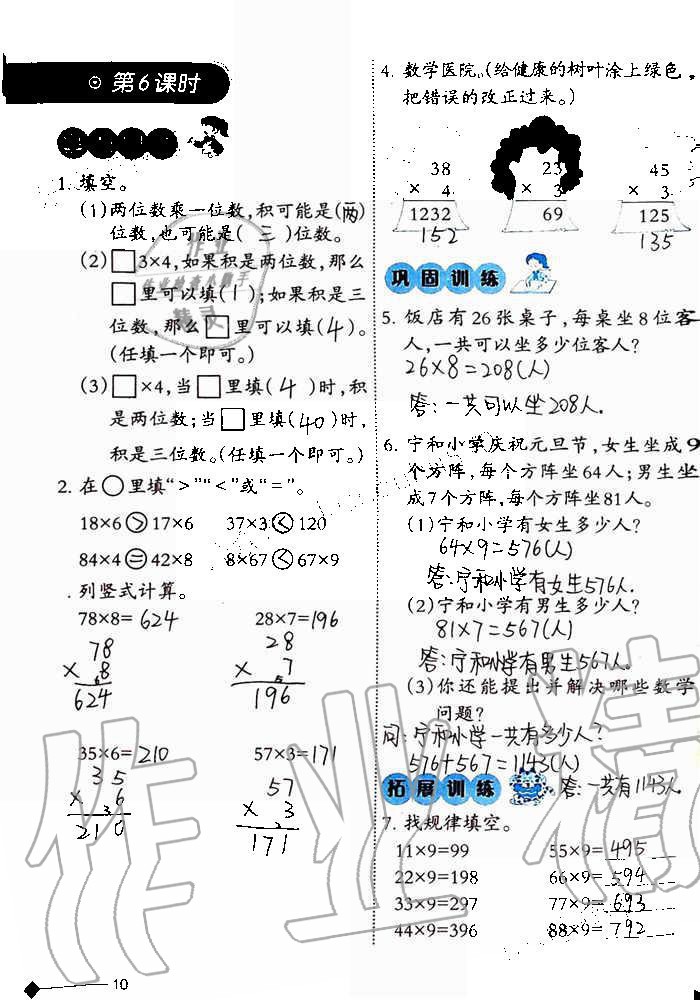 第6课时
1. 填空。
(1)两位数乘一位数,积可能是(两)
位数,也可能是( 三 )位数。
(2)□3×4,如果积是两位数,那么
□里可以填(1);如果积是三
位数,那么□里可以填(4)。
(任填一个即可。)
(3)□×4,当□里填(4)时,积
是两位数;当□里填(40)时,
积是三位数。(任填一个即可。)
2. 在○里填“>”“<”或“=”。
18×6 > 17×6 37×3 < 120
84×4 = 42×8 8×67 < 67×9
. 列竖式计算。
78×8= 624 28×7= 196
78 28
× 8 × 7
6 5
624 196
35×6= 210 57×3= 171
35 57
× 6 × 3
3 2
210 171
10
4. 数学医院。(给健康的树叶涂上绿色,
把错误的改正过来。)
38 23 45
× 4 × 3 × 3
1232 69 125
152 135
巩固训练
5. 饭店有26张桌子,每桌坐8位客
人,一共可以坐多少位客人?
26×8=208(人)
答:一共可以坐208人.
6. 宁和小学庆祝元旦节,女生坐成9
个方阵,每个方阵坐64人;男生坐
成7个方阵,每个方阵坐81人。
(1)宁和小学有女生多少人?
64×9=576(人)
答:宁和小学有女生576人.
(2)宁和小学有男生多少人?
81×7=567(人)
答:宁和小学有男生567人。
(3)你还能提出并解决哪些数学
问题?
问:宁和小学一共有多少人?
576+567=1143(人)
拓展训练 答:一共有1143人
7. 找规律填空。
11×9=99 55×9= 495
22×9=198 66×9= 594
33×9=297 77×9= 693
44×9=396 88×9= 792
作业精